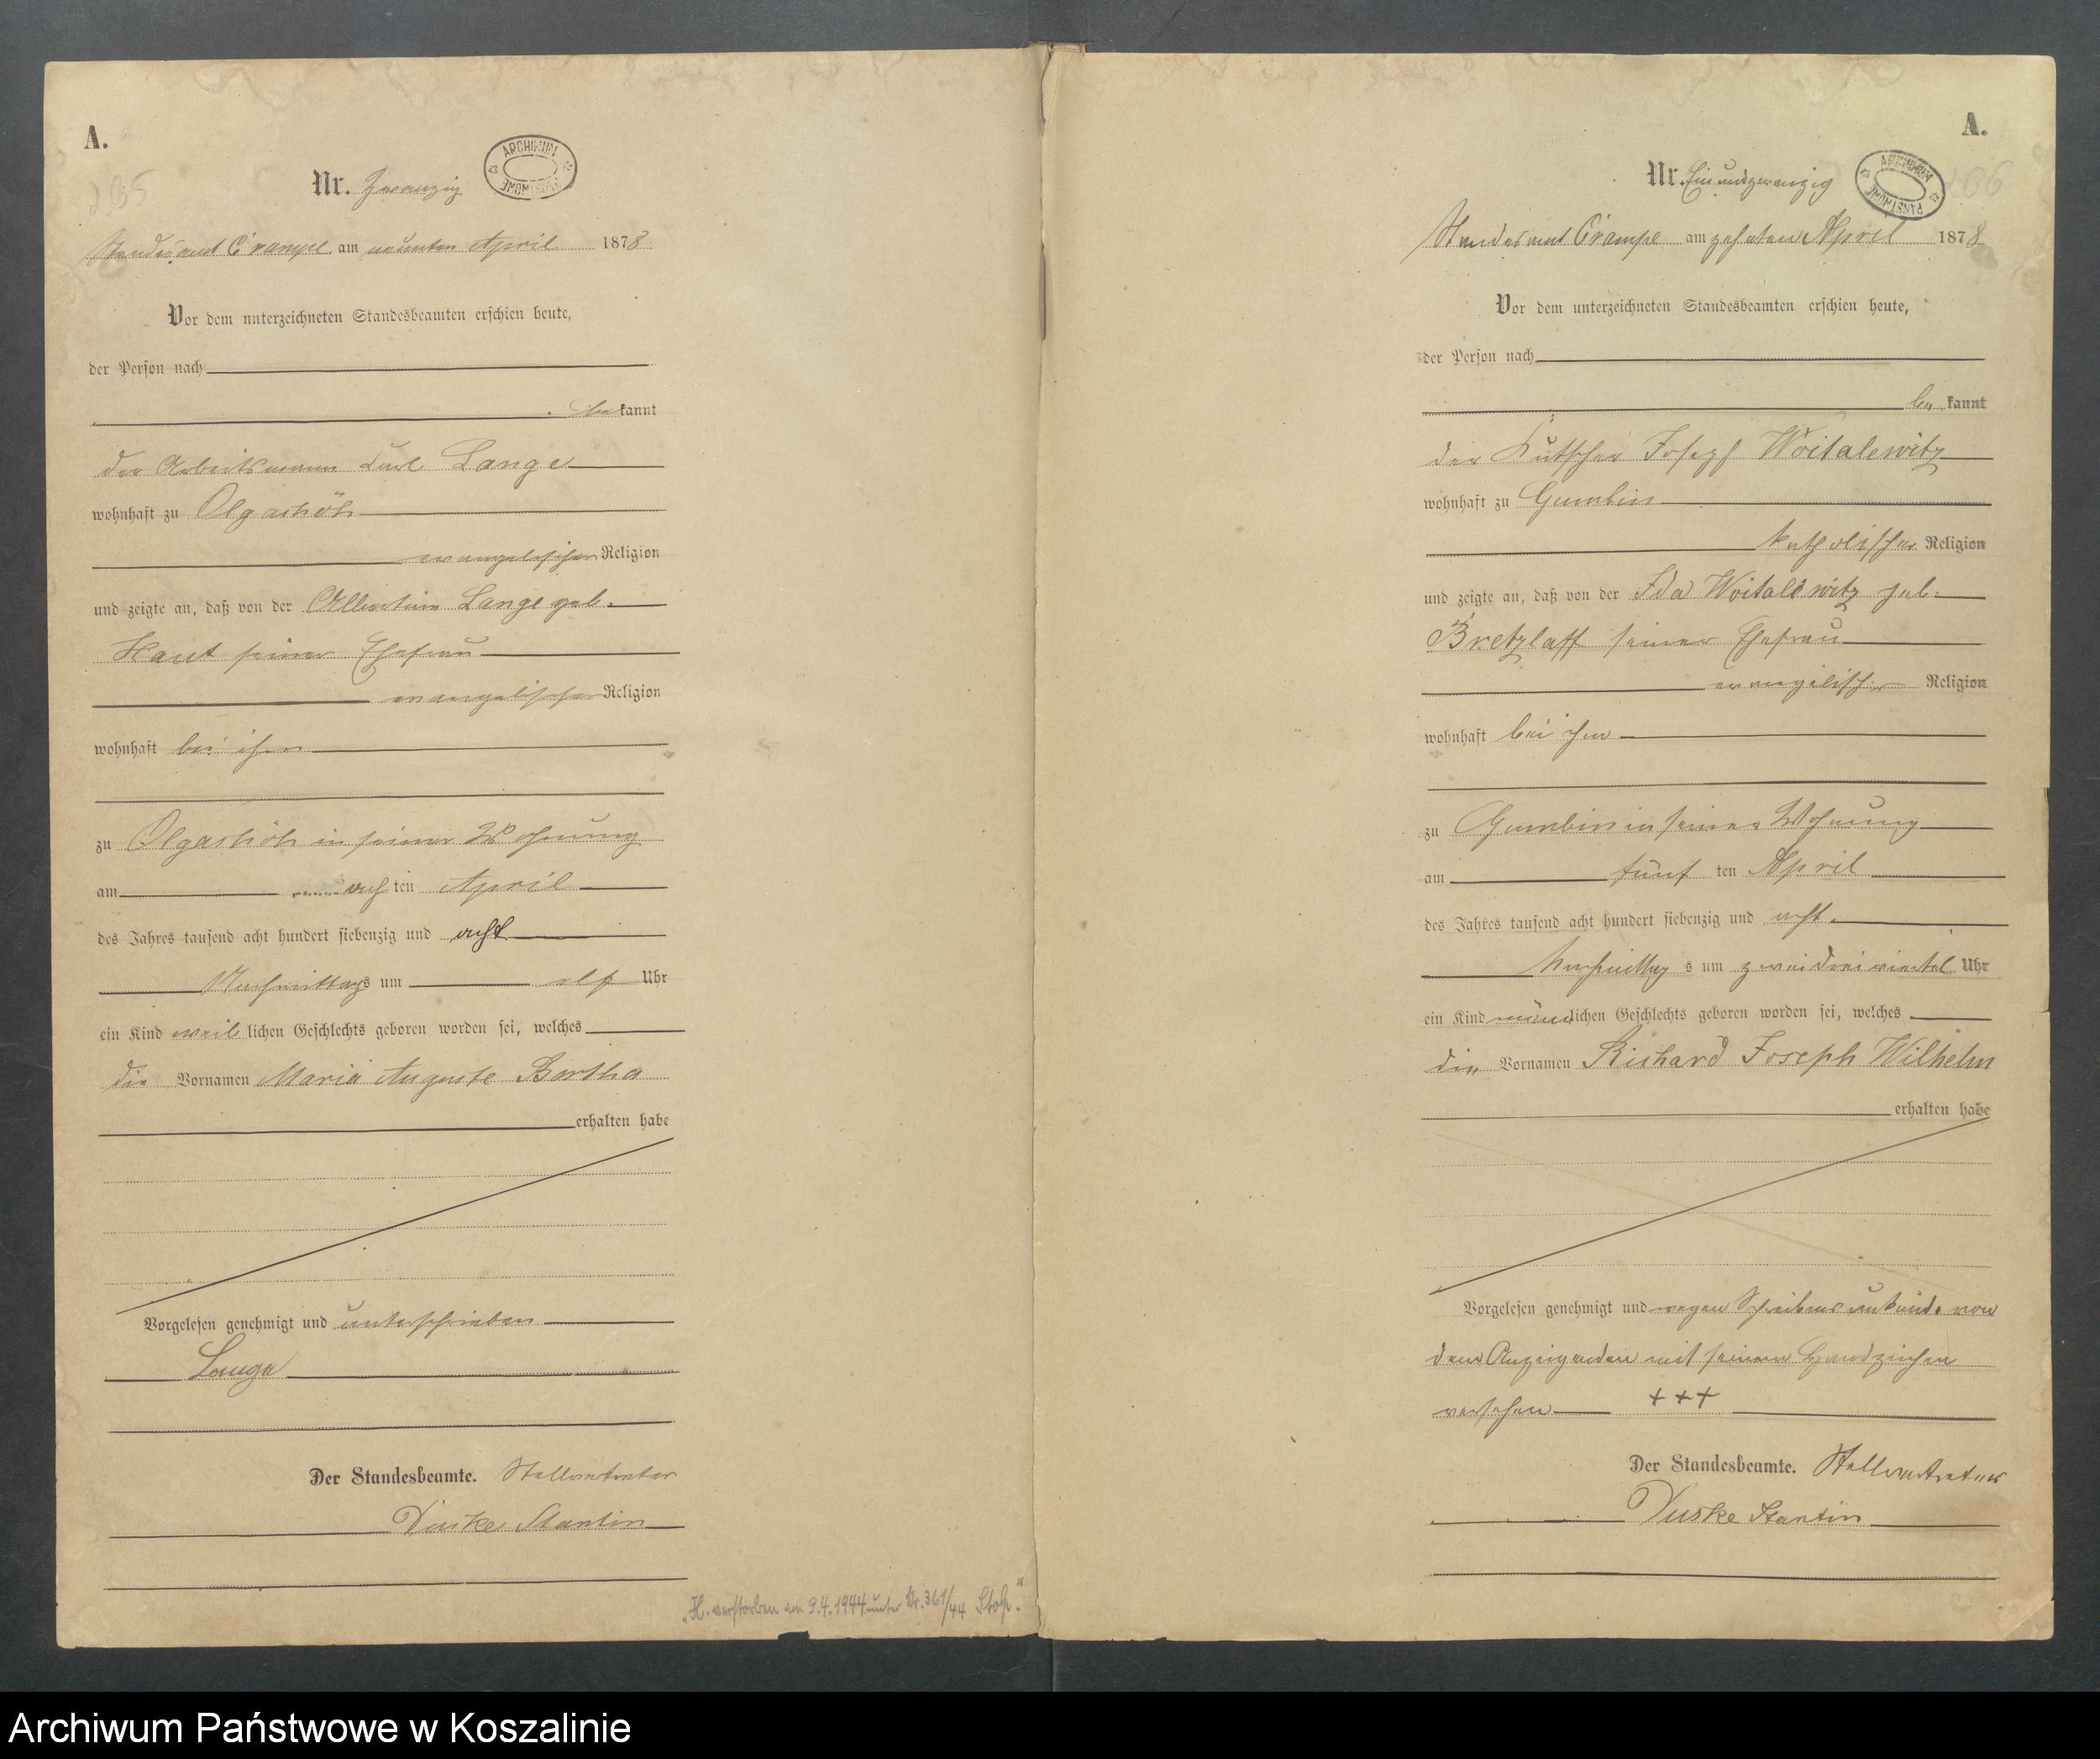 A.
265
Nr. Zwanzig
ARCHIWUM PAŃSTWOWE
Standesamt Crampe am neunten April 1878
Vor dem unterzeichneten Standesbeamten erschien heute,
der Person nach
be kannt
der Arbeitsmann Carl Lange
wohnhaft zu Olgashöh
evangelischer Religion
und zeigte an, daß von der Albertine Lange geb.
Haut seiner Ehefrau
evangelischer Religion
wohnhaft bei ihm
zu Olgashöh in seiner Wohnung
am ach ten April
des Jahres tausend acht hundert siebenzig und acht
Nachmittags um elf Uhr
ein Kind weib lichen Geschlechts geboren worden sei, welches
die Vornamen Maria Auguste Bertha
erhalten habe
Vorgelesen genehmigt und unterschrieben
Lange
Der Standesbeamte. Stellvertreter
Duske Stantin
"H. verstorben am 9.4.1944 unter Nr. 361/44 Stolp."
A.
266
Nr. Ein und zwanzig
ARCHIWUM PAŃSTWOWE
Standesamt Crampe am zehnten April 1878
Vor dem unterzeichneten Standesbeamten erschien heute,
der Person nach
be kannt
der Kutscher Joseph Woitalewitz
wohnhaft zu Gumbin
katholischer Religion
und zeigte an, daß von der Ida Woitalewitz geb.
Bretzlaff seiner Ehefrau
evangelischer Religion
wohnhaft bei ihm
zu Gumbin in seiner Wohnung
am fünf ten April
des Jahres tausend acht hundert siebenzig und acht
Nachmittag s um zwei dreiviertel Uhr
ein Kind männ lichen Geschlechts geboren worden sei, welches
die Vornamen Richard Joseph Wilhelm
erhalten habe
Vorgelesen genehmigt und wegen Schreibensunkunde von
dem Anzeigenden mit seinem Handzeichen
versehen +++
Der Standesbeamte. Stellvertreter
Duske Stantin
Archiwum Państwowe w Koszalinie